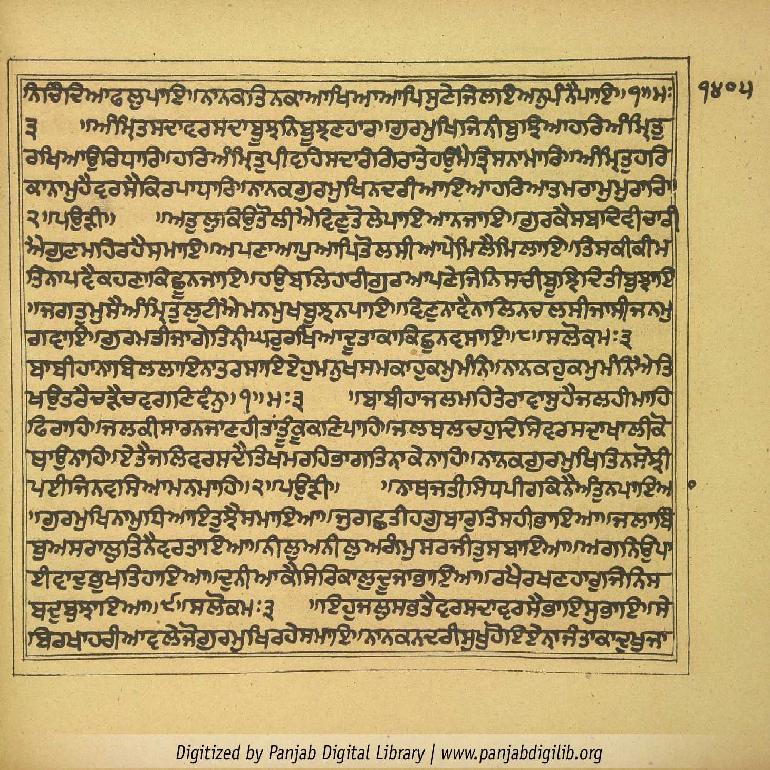 ਨਿਚਿੰਦਿਆਫਲੁਪਾਇ॥ਨਾਨਕਤਿਨਕਾਆਖਿਆਆਪਿਸੁਣੇਜਿਲਾਇਅਨੁਪੰਨੈਪਾਇ॥੧॥ਮਃ
੧੪੦੫
੩ ॥ਅੰਮ੍ਰਿਤਸਦਾਵਰਸਦਾਬੂਝਨਿਬੂਝਣਹਾਰ॥ਗੁਰਮੁਖਿਜਿਨੀਬੁਝਿਆਹਰਿਅੰਮ੍ਰਿਤੁ
ਰਖਿਆਉਰਿਧਾਰਿ॥ਹਰਿਅੰਮ੍ਰਿਤੁਪੀਵਹਿਸਦਾਰੰਗਿਰਾਤੇਹਉਮੈਤ੍ਰਿਸਨਾਮਾਰਿ॥ਅੰਮ੍ਰਿਤੁਹਰਿ
ਕਾਨਾਮੁਹੈਵਰਸੈਕਿਰਪਾਧਾਰਿ॥ਨਾਨਕਗੁਰਮੁਖਿਨਦਰੀਆਇਆਹਰਿਆਤਮਰਾਮੁਮੁਰਾਰਿ॥
੨॥ਪਉੜੀ॥ ॥ਅਤੁਲੁਕਿਉਤੋਲੀਐਵਿਣੁਤੋਲੇਪਾਇਆਨਜਾਇ॥ਗੁਰਕੈਸਬਦਿਵੀਚਾਰੀ
ਐਗੁਣਮਹਿਰਹੈਸਮਾਇ॥ਅਪਣਾਆਪੁਆਪਿਤੋਲਸੀਆਪੇਮਿਲੈਮਿਲਾਇ॥ਤਿਸਕੀਕੀਮ
ਤਿਨਾਪਵੈਕਹਣਾਕਿਛੂਨਜਾਇ॥ਹਉਬਲਿਹਾਰੀਗੁਰਆਪਣੇਜਿਨਿਸਚੀਬੂਝਿਦਿਤੀਬੁਝਾਇ
॥ਜਗਤੁਮੁਸੈਅੰਮ੍ਰਿਤੁਲੁਟੀਐਮਨਮੁਖਬੂਝਨਪਾਇ॥ਵਿਣੁਨਾਵੈਨਾਲਿਨਚਲਸੀਜਾਸੀਜਨਮੁ
ਗਵਾਇ॥ਗੁਰਮਤੀਜਾਗੇਤਿਨੀਘਰੁਰਖਿਆਦੂਤਾਕਾਕਿਛੁਨਵਸਾਇ॥੮॥ਸਲੋਕਮਃ੩
ਬਾਬੀਹਾਨਾਬਿਲਲਾਇਨਾਤਰਸਾਇਏਹੁਮਨੁਖਸਮਕਾਹੁਕਮੁਮੰਨਿ॥ਨਾਨਕਹੁਕਮੁਮੰਨਿਐਤਿ
ਖਉਤਰੈਚੜੈਚਵਗਣਿਵੰਨੁ॥੧॥ਮਃ੩ ॥ਬਾਬੀਹਾਜਲਮਹਿਤੇਰਾਵਾਸੁਹੈਜਲਹੀਮਾਹਿ
ਫਿਰਾਹਿ॥ਜਲਕੀਸਾਰਨਜਾਣਹੀਤਾਂਤੂੰਕੂਕਣਪਾਹਿ॥ਜਲਥਲਚਹੁਦਿਸਿਵਰਸਦਾਖਾਲੀਕੋ
ਥਾਉਨਾਹਿ॥ਏਤੈਜਲਿਵਰਸਦੈਤਿਖਮਰਹਿਭਾਗਤਿਨਾਕੇਨਾਹਿ॥ਨਾਨਕਗੁਰਮੁਖਿਤਿਨਸੋਝੀ
ਪਈਜਿਨਵਸਿਆਮਨਮਾਹਿ॥੨॥ਪਉੜੀ॥ ॥ਨਾਥਜਤੀਸਿਧਪੀਰਕਿਨੈਅੰਤੁਨਪਾਇਆ
॥ਗੁਰਮੁਖਿਨਾਮੁਧਿਆਇਤੁਝੈਸਮਾਇਆ॥ਜੁਗਛਤੀਹਗੁਬਾਰੁਤਿਸਹੀਭਾਇਆ॥ਜਲਾਬਿੰ
ਬੁਅਸਰਾਲੁਤਿਨੈਵਰਤਾਇਆ॥ਨੀਲੁਅਨੀਲੁਅਗੰਮੁਸਰਜੀਤੁਸਬਾਇਆ॥ਅਗਨਿਉਪਾ
ਈਵਾਦੁਭੁਖਤਿਹਾਇਆ॥ਦੁਨੀਆਕੈਸਿਰਿਕਾਲੁਦੂਜਾਭਾਇਆ॥ਰਖੈਰਖਣਹਾਰੁਜਿਨਿਸ
ਬਦੁਬੁਝਾਇਆ॥੯॥ਸਲੋਕਮਃ੩ ॥ਇਹੁਜਲੁਸਭਤੈਵਰਸਦਾਵਰਸੈਭਾਇਸੁਭਾਇ॥ਸੇ
ਬਿਰਖਾਹਰੀਆਵਲੇਜੋਗੁਰਮੁਖਿਰਹੇਸਮਾਇ॥ਨਾਨਕਨਦਰੀਸੁਖੁਹੋਇਏਨਾਜੰਤਾਕਾਦੁਖੁਜਾ
Digitized by Panjab Digital Library | www.panjabdigilib.org